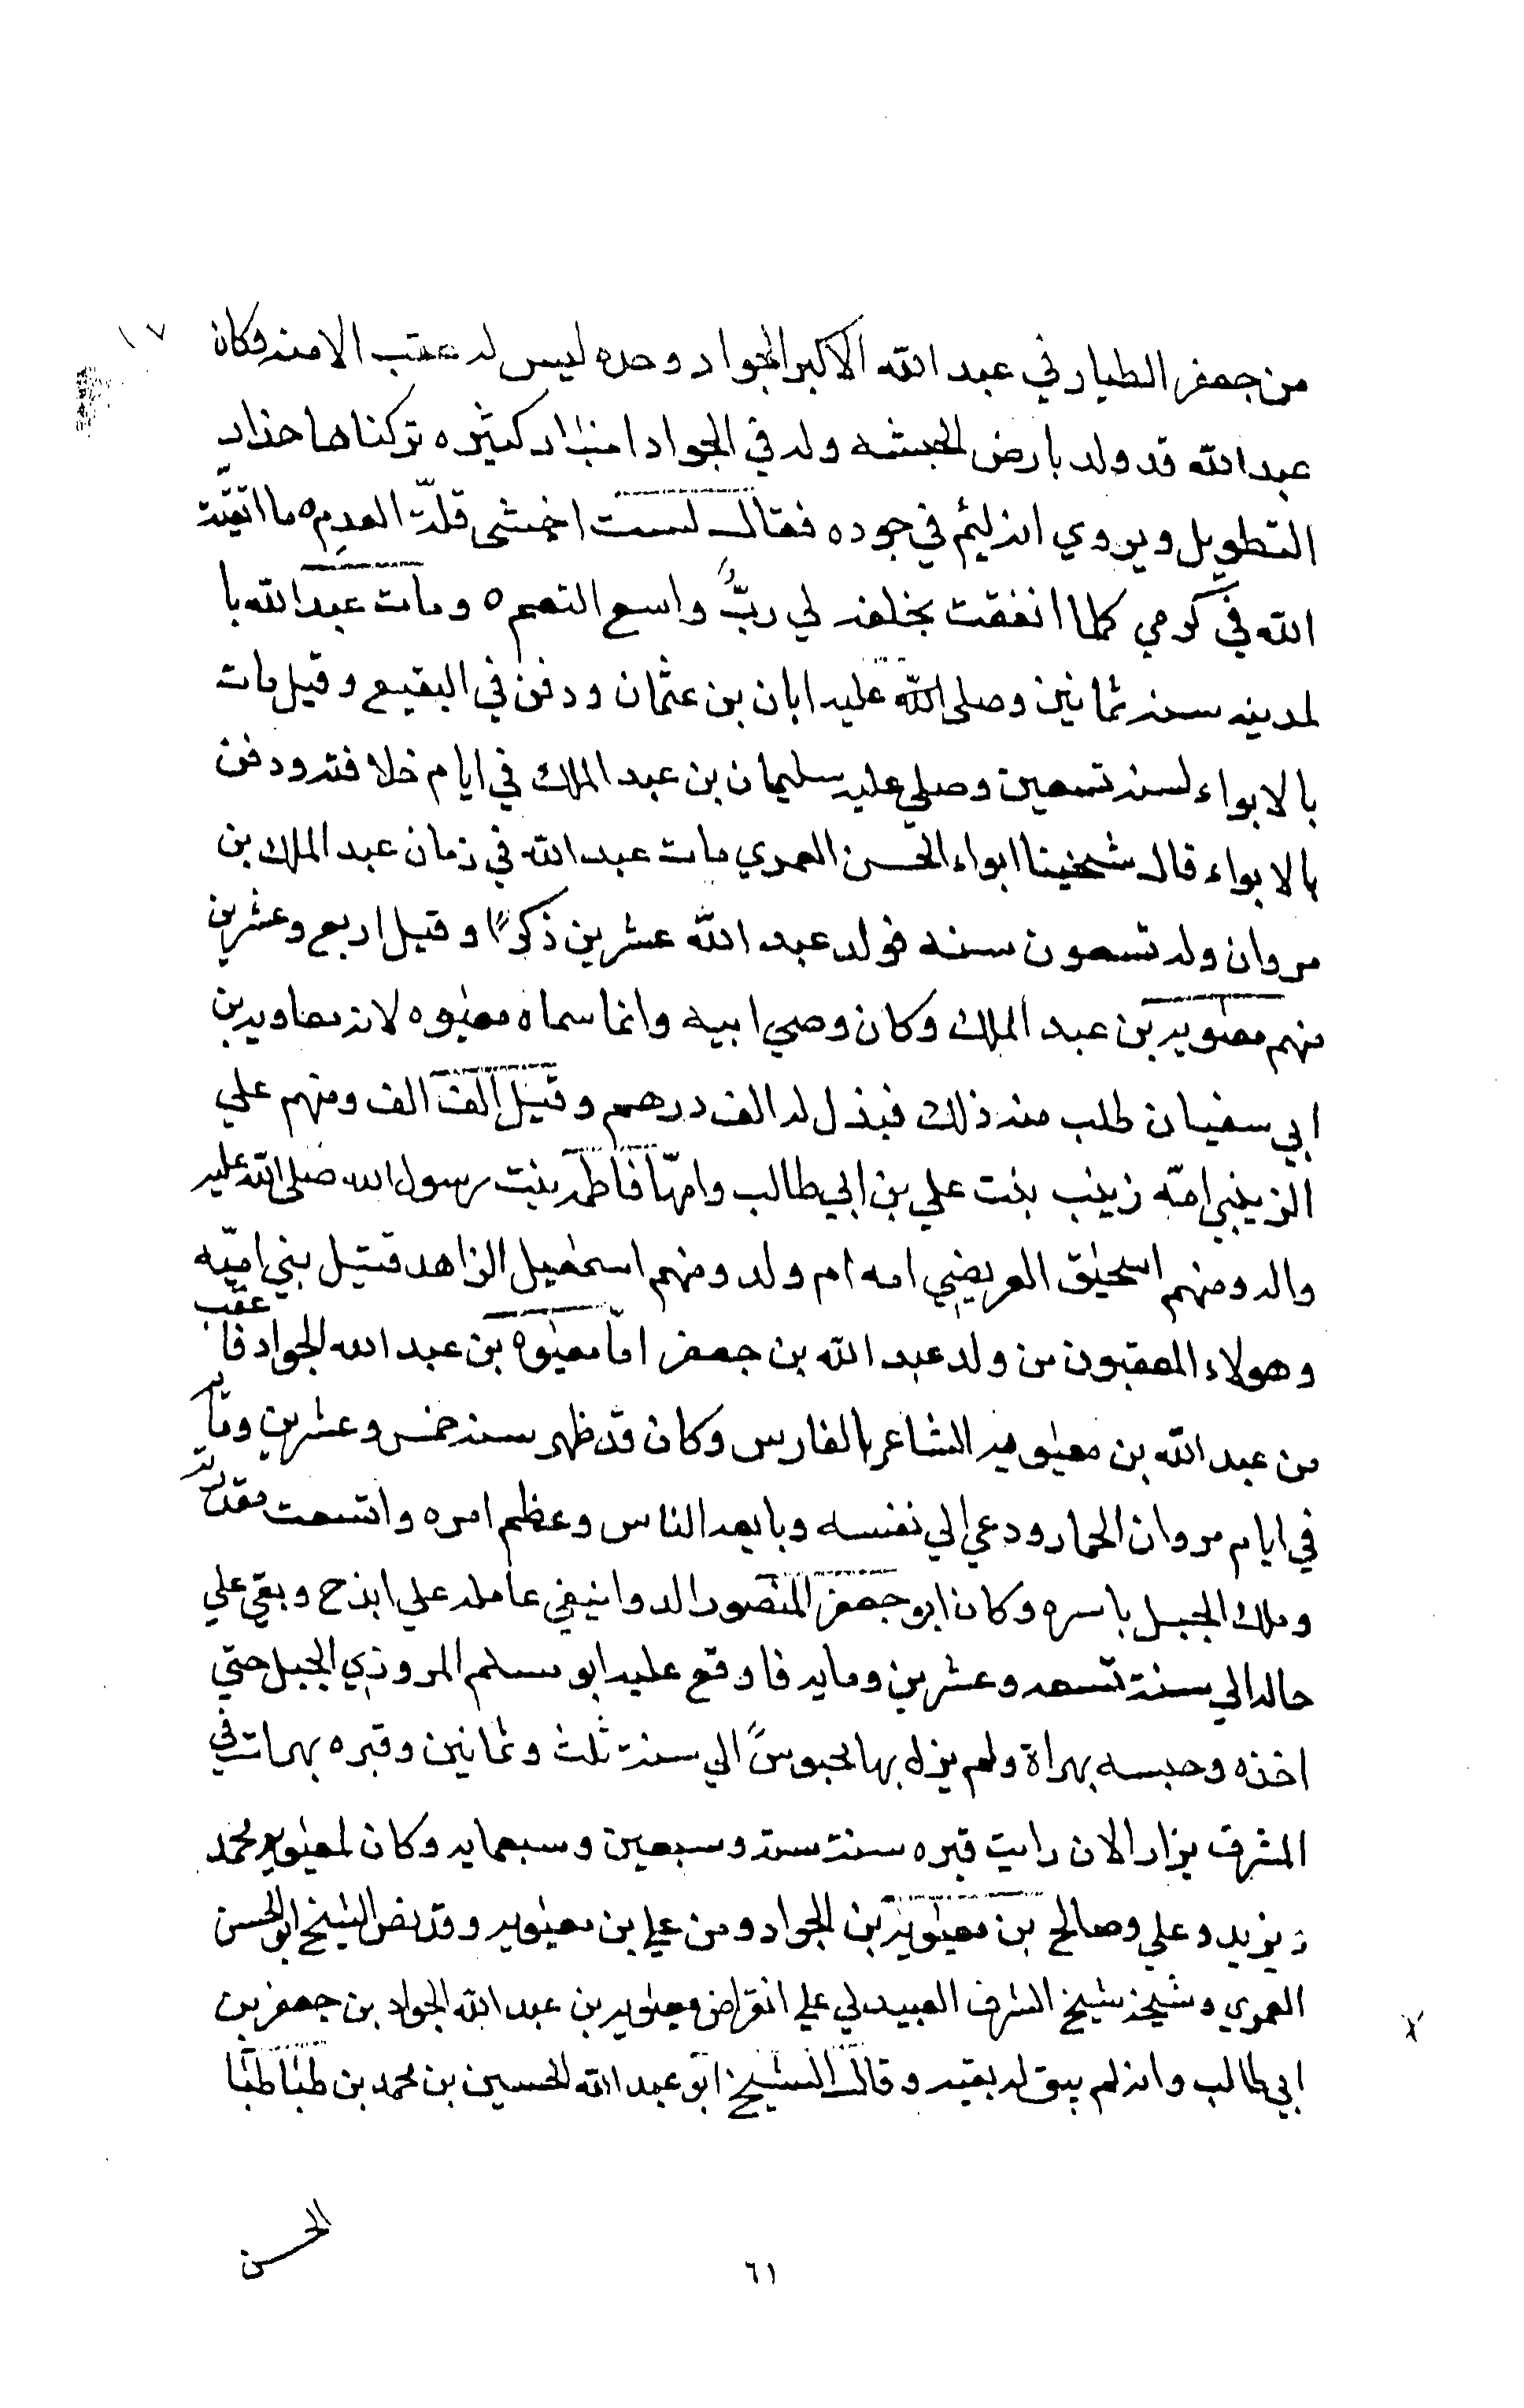 ١٧
من جعفر الطيار في عبد الله الاكبر الجواد وحده ليس له عقب الا منه وكان
عبد الله قد ولد بارض الحبشه وله في الجواد اخبار كثيره تركناها حذار
التطويل ويروي انه ليم في جوده فقال لست اخشى قلة العدم ه ما اتقيت
الله في كرمي كلما انفقت يخلفه لي ربٌّ واسع النعم ه ومات عبد الله با
لمدينه سنه ثمانين وصلى الله عليه ابان بن عثمان ودفن في البقيع وقيل مات
بالابواء لسنه تسعين وصلي عليه سليمان بن عبد الملك في ايام خلافته ودفن
بالابواء قال شيخنا ابواء الحسن العمري مات عبد الله في زمان عبد الملك بن
مروان وله تسعون سنه فولد عبد الله عشرين ذكرًا وقيل اربع وعشرين
منهم معويه بن عبد الملك وكان وصي ابيه وانما سماه معوٰيه لانه معاويه بن
ابي سفيان طلب منه ذلك فبذل له الف درهم وقيل الف الف ومنهم علي
الزينبي امّه زينب بنت علي بن ابي طالب وامّها فاطمه بنت رسول الله صلى الله عليه
واله ومنهم اسحٰق العريضي امه ام ولد ومنهم اسمٰعيل الزاهد قتيل بني اميّه
وهولاء المعقبون من ولد عبد الله بن جعفر امّا معوٰيه بن عبد الله الجواد فاعقب
من عبد الله بن معٰويه الشاعر بالفارس وكان قد ظهر سنه خمس وعشرين ومايه
في ايام مروان الحمار ودعي الي نفسه وبايعه الناس وعظم امره واتسعت مقدرته
وملك الجبل باسره وكان ابو جعفر المنصور الدوانيقي عامله علي ايذج وبقي علي
حاله الي سنة تسعه وعشرين ومايه فاوقع عليه ابو مسلم المروزي الجبل حتي
اخذه وحبسه بهراة ولم يزل بها محبوسً الي سنة ثلث وثمانين وقبره بهرات في
المشرق يزار الان رايت قبره سنة ستة وسبعين وسبعمايه وكان لمعٰويه محمد
ويزيد وعلي وصالح بن معٰويه بن الجواد ومن علي بن معٰويه وقد نص الشيخ ابو الحسن
العمري وشيخه شيخ الشرف العبيدلي علي انقراض معٰويه بن عبد الله الجواد بن جعفر بن
ابي طالب وانه لم يبق له بقيه وقال الشيخ ابو عبد الله الحسين بن محمد بن طباطبا
الحسن
٦١